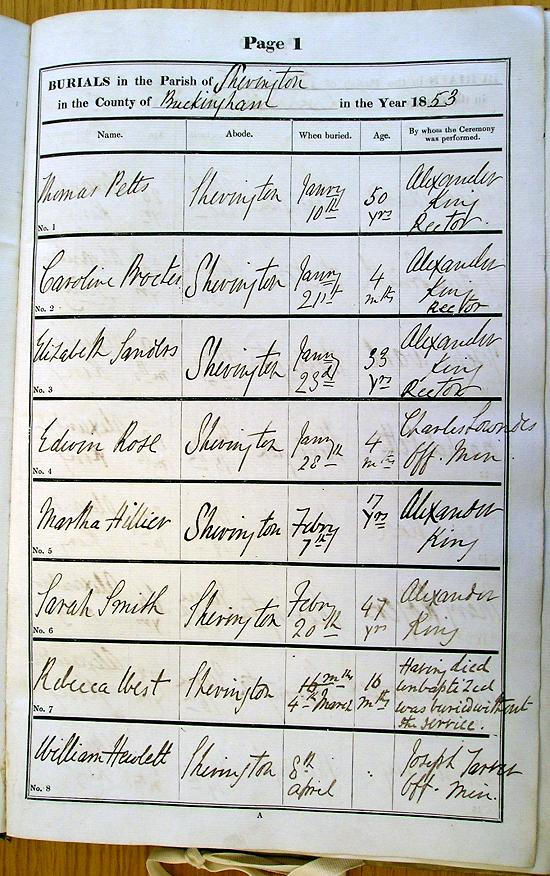 Page 1
BURIALS in the Parish of Shevington
in the County of Buckingham in the Year 1853
Name. Abode. When buried. Age. By whom the Ceremony was performed.
Thomas Petts Shevington Janry 10th 50 yrs Alexander King Rector.
No. 1
Caroline Procter Shevington Janry 21st 4 mths Alexander King Rector
No. 2
Elizabeth Sanders Shevington Janry 23d 33 yrs Alexander King Rector
No. 3
Edwin Rose Shevington Janry 28th 4 mths Charles Lowndes Off. Min.
No. 4
Martha Hillier Shevington Febry 7th 17 yrs Alexander King
No. 5
Sarah Smith Shevington Febry 20th 47 yrs Alexander King
No. 6
Rebecca West Shevington 16 mths 4th March 16 mths Having died unbaptized was buried without the service.
No. 7
William Hewlett Shevington 8th April . Joseph Off. Min.
No. 8
A